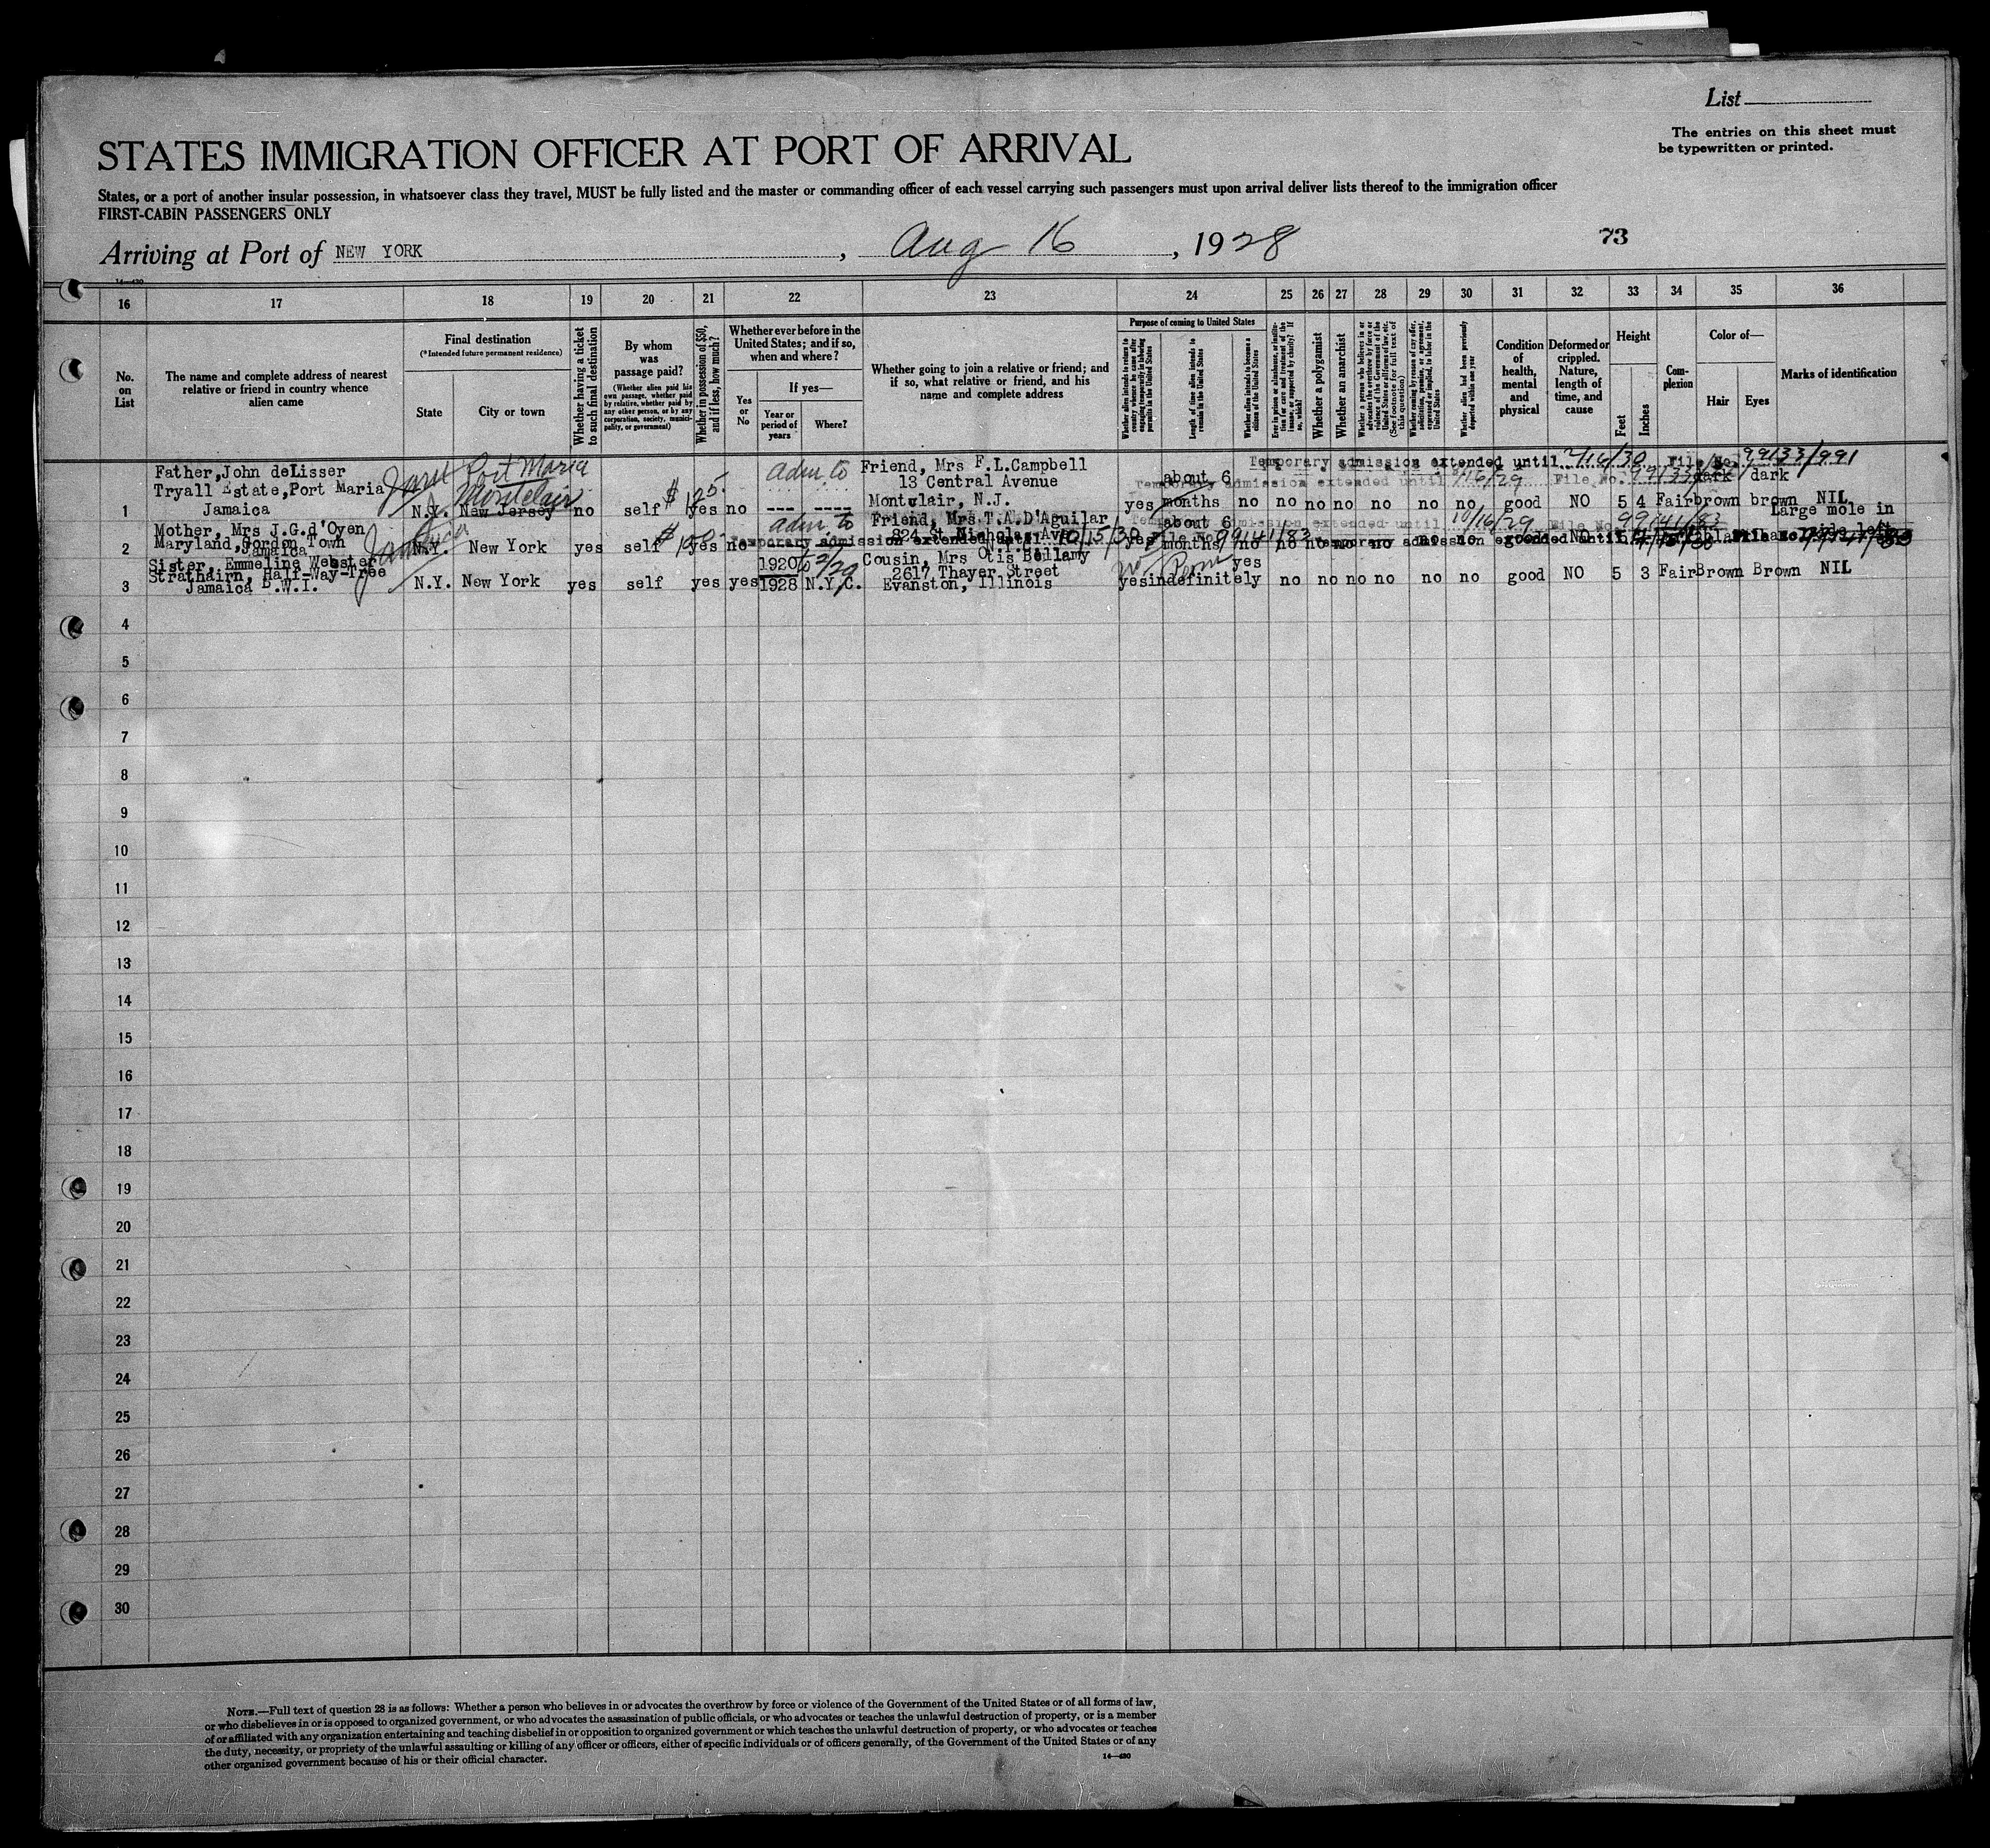 List
The entries on this sheet must
be typewritten or printed.
STATES IMMIGRATION OFFICER AT PORT OF ARRIVAL
States, or a port of another insular possession, in whatsoever class they travel, MUST be fully listed and the master or commanding officer of each vessel carrying such passengers must upon arrival deliver lists thereof to the immigration officer
FIRST-CABIN PASSENGERS ONLY
Arriving at Port of NEW YORK, Aug 16, 1928
73
16 17 18 19 20 21 22 23 24 25 26 27 28 29 30 31 32 33 34 35 36
No. on List
The name and complete address of nearest
relative or friend in country whence
alien came
Final destination
(*Intended future permanent residence)
State
City or town
Whether having a ticket
to such final destination
By whom
was
passage paid?
(Whether alien paid his
own passage, whether paid
by relative, whether paid by
any other person, or by any
corporation, society, munici-
pality, or government)
Whether in possession of $50,
and if less, how much?
Whether ever before in the
United States; and if so,
when and where?
Yes
or
No
If yes—
Year or
period of
years
Where?
Whether going to join a relative or friend; and
if so, what relative or friend, and his
name and complete address
Purpose of coming to United States
Whether alien intends to return to
country whence he came after
engaging temporarily in laboring
pursuits in the United States
Length of time alien intends to
remain in the United States
Whether alien intends to become a
citizen of the United States
Ever in prison or almshouse, or institu-
tion for care and treatment of the
insane, or supported by charity? If
so, which?
Whether a polygamist
Whether an anarchist
(See footnote for full text of
this question)
Whether alien had been previously
deported within one year
Condition
of
health,
mental
and
physical
Deformed or
crippled.
Nature,
length of
time, and
cause
Height
Feet
Inches
Com-
plexion
Color of—
Hair
Eyes
Marks of identification
Temporary admission extended until 2/16/30 File No. 99133/991
Father, John deLisser
Tryall Estate, Port Maria
Jamaica
Port Maria
Montclair
adm to
Friend, Mrs F.L.Campbell
13 Central Avenue
Montclair, N.J.
Temporary admission extended until File No.
1 N.Y. New Jersey no self $125. yes no --- ---- yes about 6 months no no no no no no no good NO 5 4 Fair dark brown dark brown NIL
Mother, Mrs J.G.d'Oyen
Maryland, Gordon Town
Jamaica
Jamaica
adm to
Friend, Mrs.T.A.D'Aguilar
824 St Nicholas Ave
10/16/29 File No. 99141/83
Temporary admission extended until 10/15/30 File No. 99141/83
Temporary admission extended until
2 N.Y. New York yes self yes no yes about 6 months no no no no no no no good NO
Large mole in
side left
Sister, Emmeline Webster
Strathairn, Half-Way-Tree
Jamaica B.W.I.
Cousin, Mrs Otis Bellamy
2617 Thayer Street
Evanston, Illinois
no Perm
3 N.Y. New York yes self yes yes 1920 to 1928 N.Y.C. yes indefinitely yes no no no no no no good NO 5 3 Fair Brown Brown NIL
4
5
6
7
8
9
10
11
12
13
14
15
16
17
18
19
20
21
22
23
24
25
26
27
28
29
30
NOTE.—Full text of question 28 is as follows: Whether a person who believes in or advocates the overthrow by force or violence of the Government of the United States or of all forms of law,
or who disbelieves in or is opposed to organized government, or who advocates the assassination of public officials, or who advocates or teaches the unlawful destruction of property, or is a member
of or affiliated with any organization entertaining and teaching disbelief in or opposition to organized government or which teaches the unlawful destruction of property, or who advocates or teaches
the duty, necessity, or propriety of the unlawful assaulting or killing of any officer or officers, either of specific individuals or of officers generally, of the Government of the United States or of any
other organized government because of his or their official character.
14—430